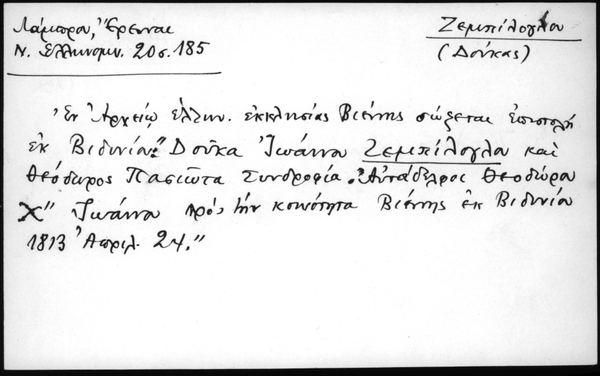 Λάμπρου, Ἔρευναι
Ν. Ἑλληνομν. 20 σ. 185
Ζεμπίλογλου
(Δούκας)
Ἐν Ἀρχείῳ ἑλλην. ἐκκλησίας Βιέννης σώζεται ἐπιστολὴ
ἐκ Βιδυνίου "Δούκα Ἰωάννου Ζεμπίλογλου καὶ
Θεόδωρος Πασιώτα Συντροφία. Αὐτάδελφοι Θεοδώρου
Χ" Ἰωάννου πρὸς τὴν κοινότητα Βιέννης ἐκ Βιδυνίου
1813 Ἀπριλ. 24."